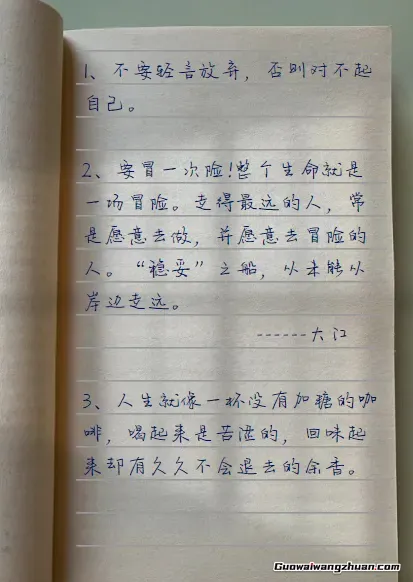 1、不要轻言放弃，否则对不起
自己。
2、要冒一次险！整个生命就是
一场冒险。走得最远的人，常
是愿意去做，并愿意去冒险的
人。“稳妥”之船，从未能从
岸边走远。
------大江
3、人生就像一杯没有加糖的咖
啡，喝起来是苦涩的，回味起
来却有久久不会退去的余香。
Guowaiwangzhuan.com